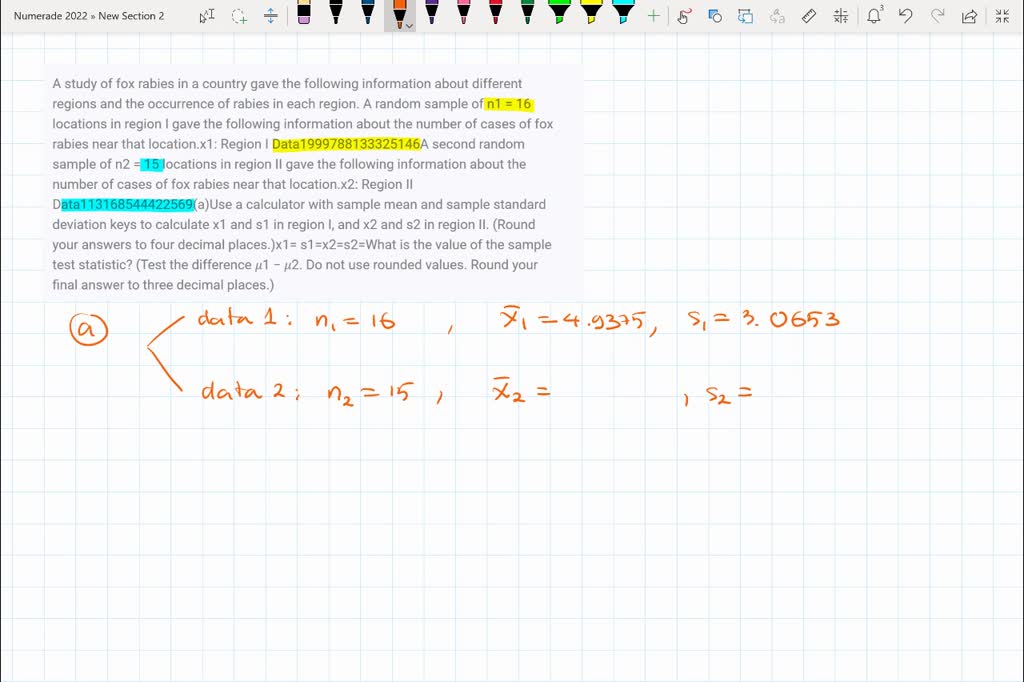 Numerade 2022 » New Section 2
3
A study of fox rabies in a country gave the following information about different
regions and the occurrence of rabies in each region. A random sample of n1 = 16
locations in region I gave the following information about the number of cases of fox
rabies near that location.x1: Region I Data1999788133325146A second random
sample of n2 = 15 locations in region II gave the following information about the
number of cases of fox rabies near that location.x2: Region II
Data113168544422569(a)Use a calculator with sample mean and sample standard
deviation keys to calculate x1 and s1 in region I, and x2 and s2 in region II. (Round
your answers to four decimal places.)x1= s1=x2=s2=What is the value of the sample
test statistic? (Test the difference μ1 − μ2. Do not use rounded values. Round your
final answer to three decimal places.)
a data 1: n₁ = 16 , x̄₁ = 4.9375, s₁ = 3.0653
data 2: n₂ = 15 , x̄₂ = , s₂ =